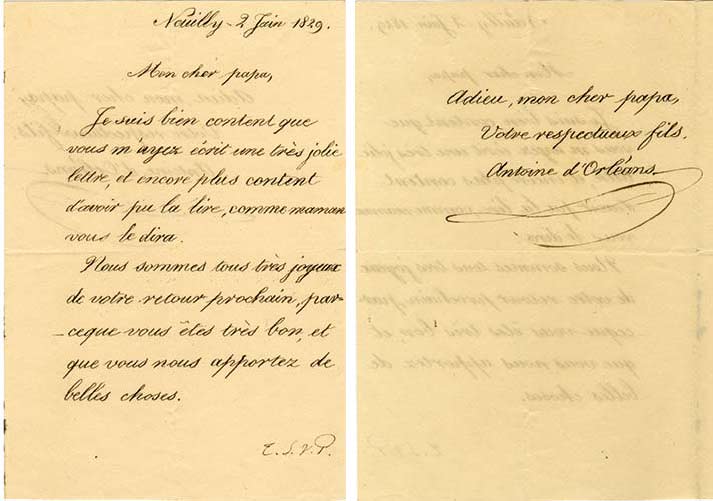 Neuilly - 2 Juin 1829.
Mon cher papa,
Je suis bien content que
vous m'ayez écrit une très jolie
lettre, et encore plus content
d'avoir pu la lire, comme maman
vous le dira.
Nous sommes tous très joyeux
de votre retour prochain, par-
-ceque vous êtes très bon, et
que vous nous apportez de
belles choses.
T. S. V. P.
Adieu, mon cher papa,
Votre respectueux fils.
Antoine d'Orléans